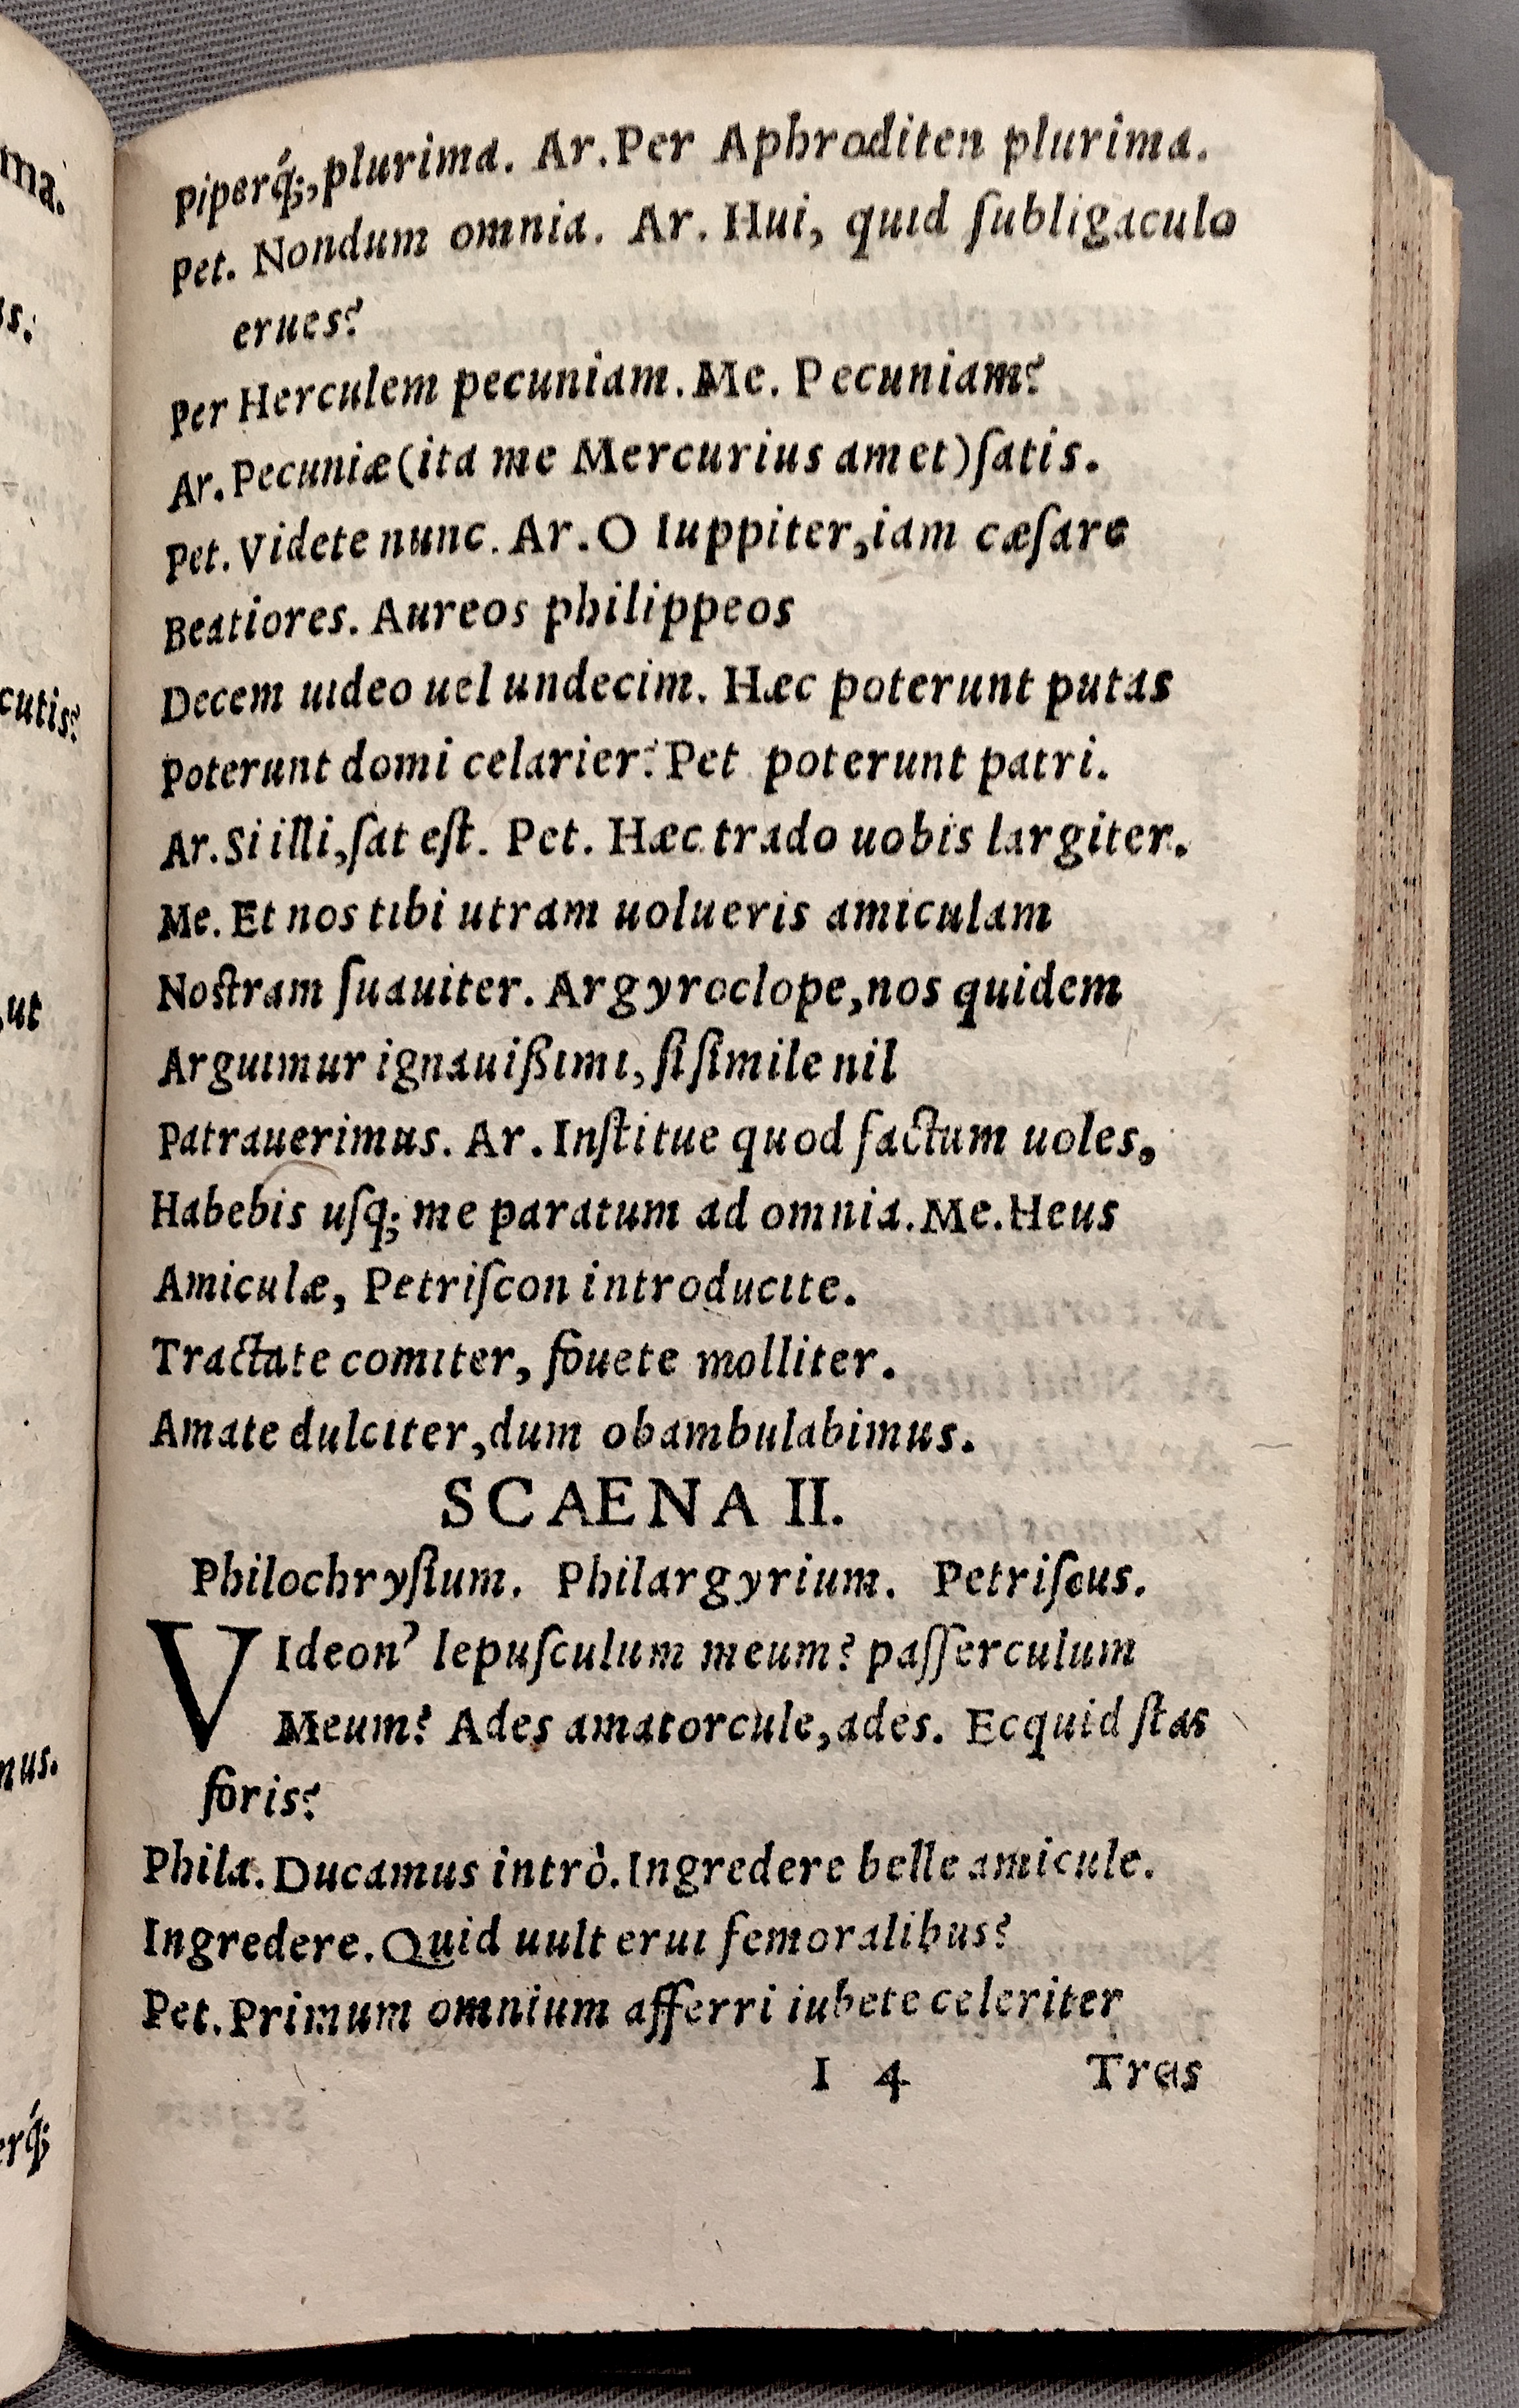 piperq́;, plurima. Ar. Per Aphroditen plurima.
Pet. Nondum omnia. Ar. Hui, quid ſubligaculo
erues?
Per Herculem pecuniam. Me. Pecuniam?
Ar. Pecuniæ (ita me Mercurius amet) ſatis.
Pet. Videte nunc. Ar. O Iuppiter, iam cæſare
Beatiores. Aureos philippeos
Decem uideo uel undecim. Hæc poterunt putas
Poterunt domi celarier? Pet poterunt patri.
Ar. Si illi, ſat eſt. Pet. Hæc trado uobis largiter.
Me. Et nos tibi utram uolueris amiculam
Nostram ſuauiter. Argyroclope, nos quidem
Arguimur ignauißimi, ſi ſimile nil
Patrauerimus. Ar. Inſtitue quod factum uoles,
Habebis uſq; me paratum ad omnia. Me. Heus
Amiculæ, Petriſcon introducite.
Tractate comiter, fouete molliter.
Amate dulciter, dum obambulabimus.
SCAENA II.
Philochryſium. Philargyrium. Petriſcus.
VIdeon' lepuſculum meum? paſſerculum
Meum? Ades amatorcule, ades. Ecquid ſtas
foris?
Phila. Ducamus intrò. Ingredere belle amicule.
Ingredere. Quid uult erui femoralibus?
Pet. Primum omnium afferri iubete celeriter
I 4 Tres
ma.
s.
cutis?
,ut
mus.
erq́;